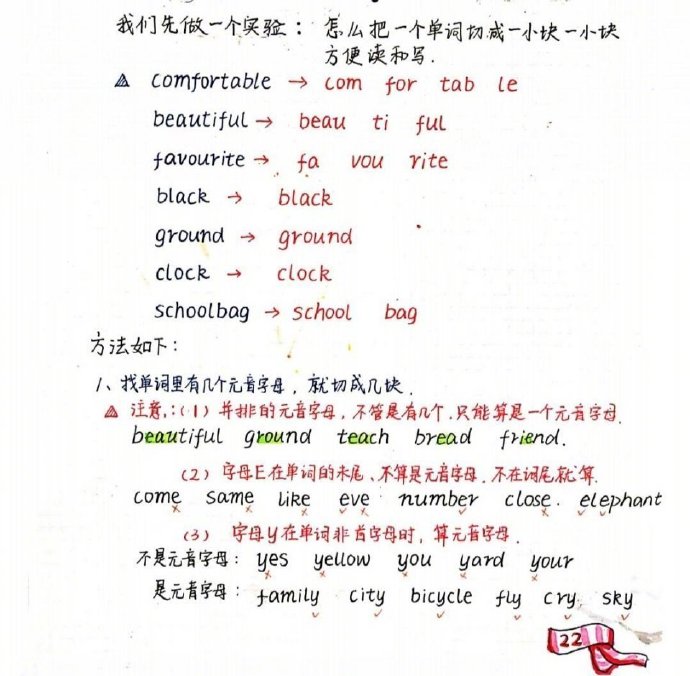 我们先做一个实验： 怎么把一个单词切成一小块一小块
方便读和写.
△ comfortable → com for tab le
beautiful → beau ti ful
favourite → fa vou rite
black → black
ground → ground
clock → clock
schoolbag → school bag
方法如下：
1、找单词里有几个元音字母，就切成几块.
△ 注意：(1) 并排的元音字母，不管是有几个.只能算是一个元音字母.
beautiful ground teach bread friend.
(2) 字母E在单词的末尾、不算是元音字母、不在词尾就算.
come same like eve number close. elephant
(3) 字母y在单词非首字母时，算元音字母.
不是元音字母： yes yellow you yard your
是元音字母： family city bicycle fly cry sky
22